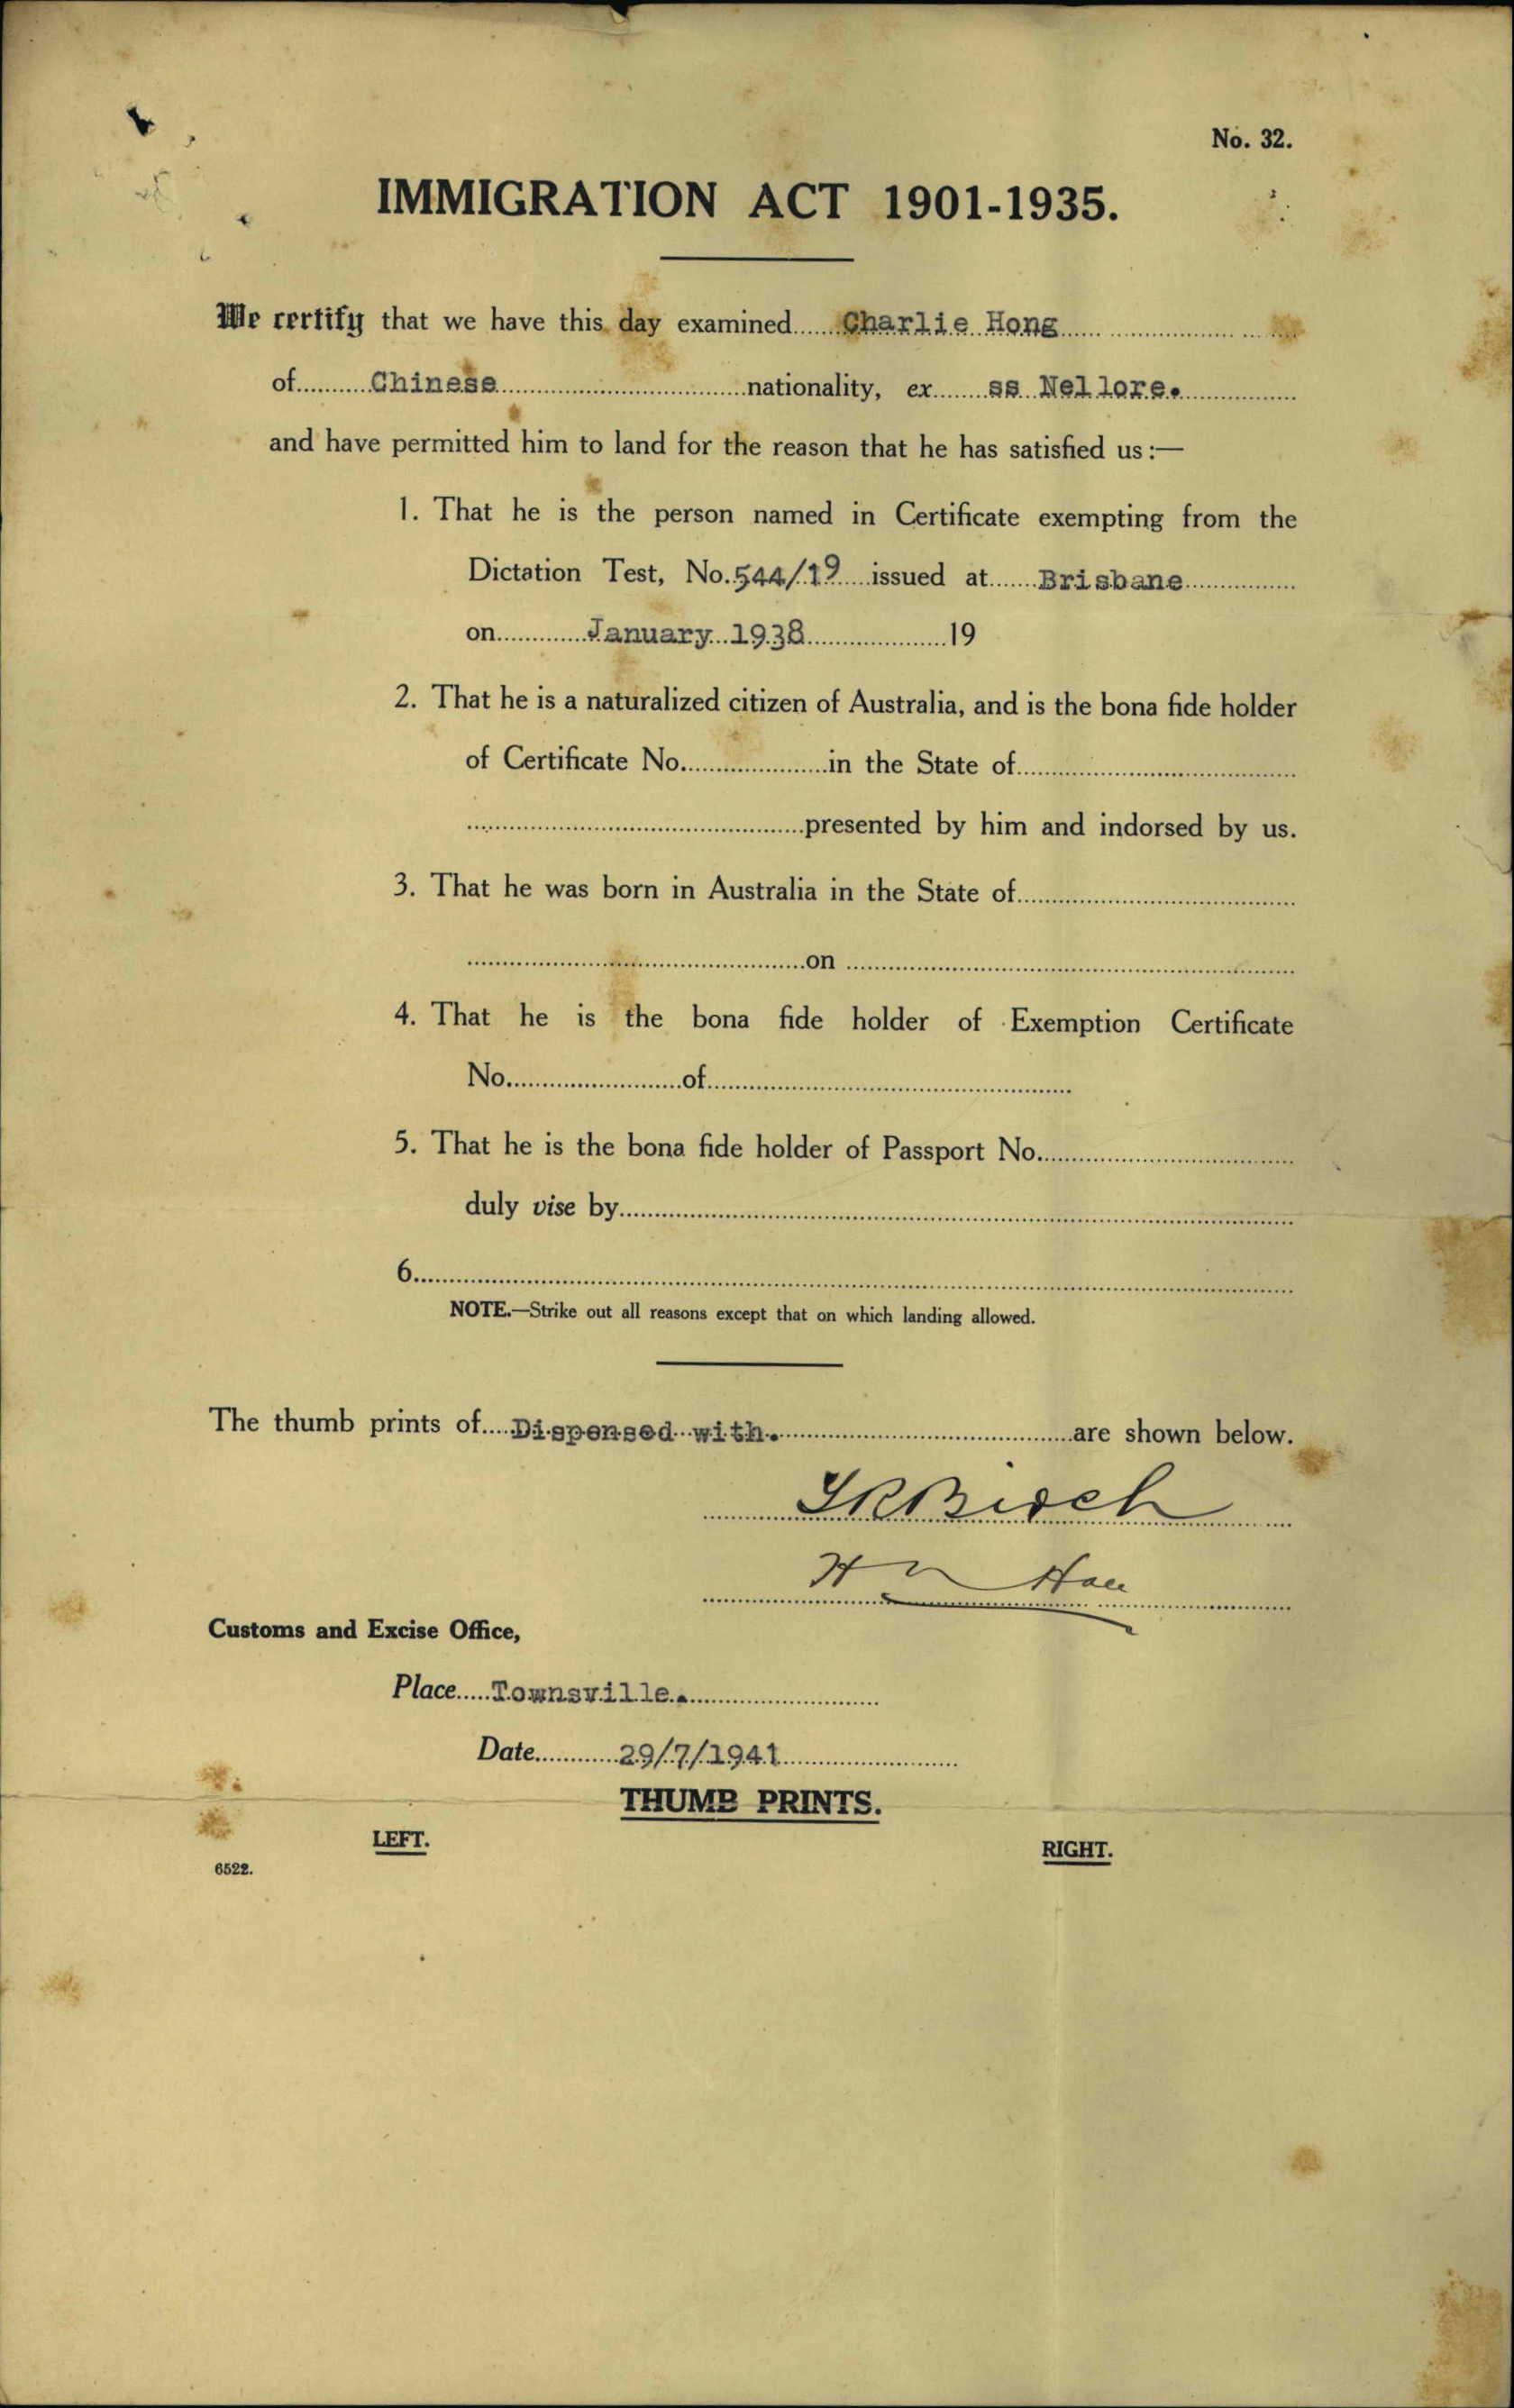 No. 32.
IMMIGRATION ACT 1901-1935.
We certify that we have this day examined Charlie Hong
of Chinese nationality, ex ss Nellore.
and have permitted him to land for the reason that he has satisfied us :—
1. That he is the person named in Certificate exempting from the
Dictation Test, No. 544/19 issued at Brisbane
on January 1938 19
2. That he is a naturalized citizen of Australia, and is the bona fide holder
of Certificate No. in the State of
presented by him and indorsed by us.
3. That he was born in Australia in the State of
on
4. That he is the bona fide holder of Exemption Certificate
No. of
5. That he is the bona fide holder of Passport No.
duly vise by
6.
NOTE.—Strike out all reasons except that on which landing allowed.
The thumb prints of Dispensed with. are shown below.
Customs and Excise Office,
Place Townsville.
Date 29/7/1941
THUMB PRINTS.
LEFT.
RIGHT.
6522.